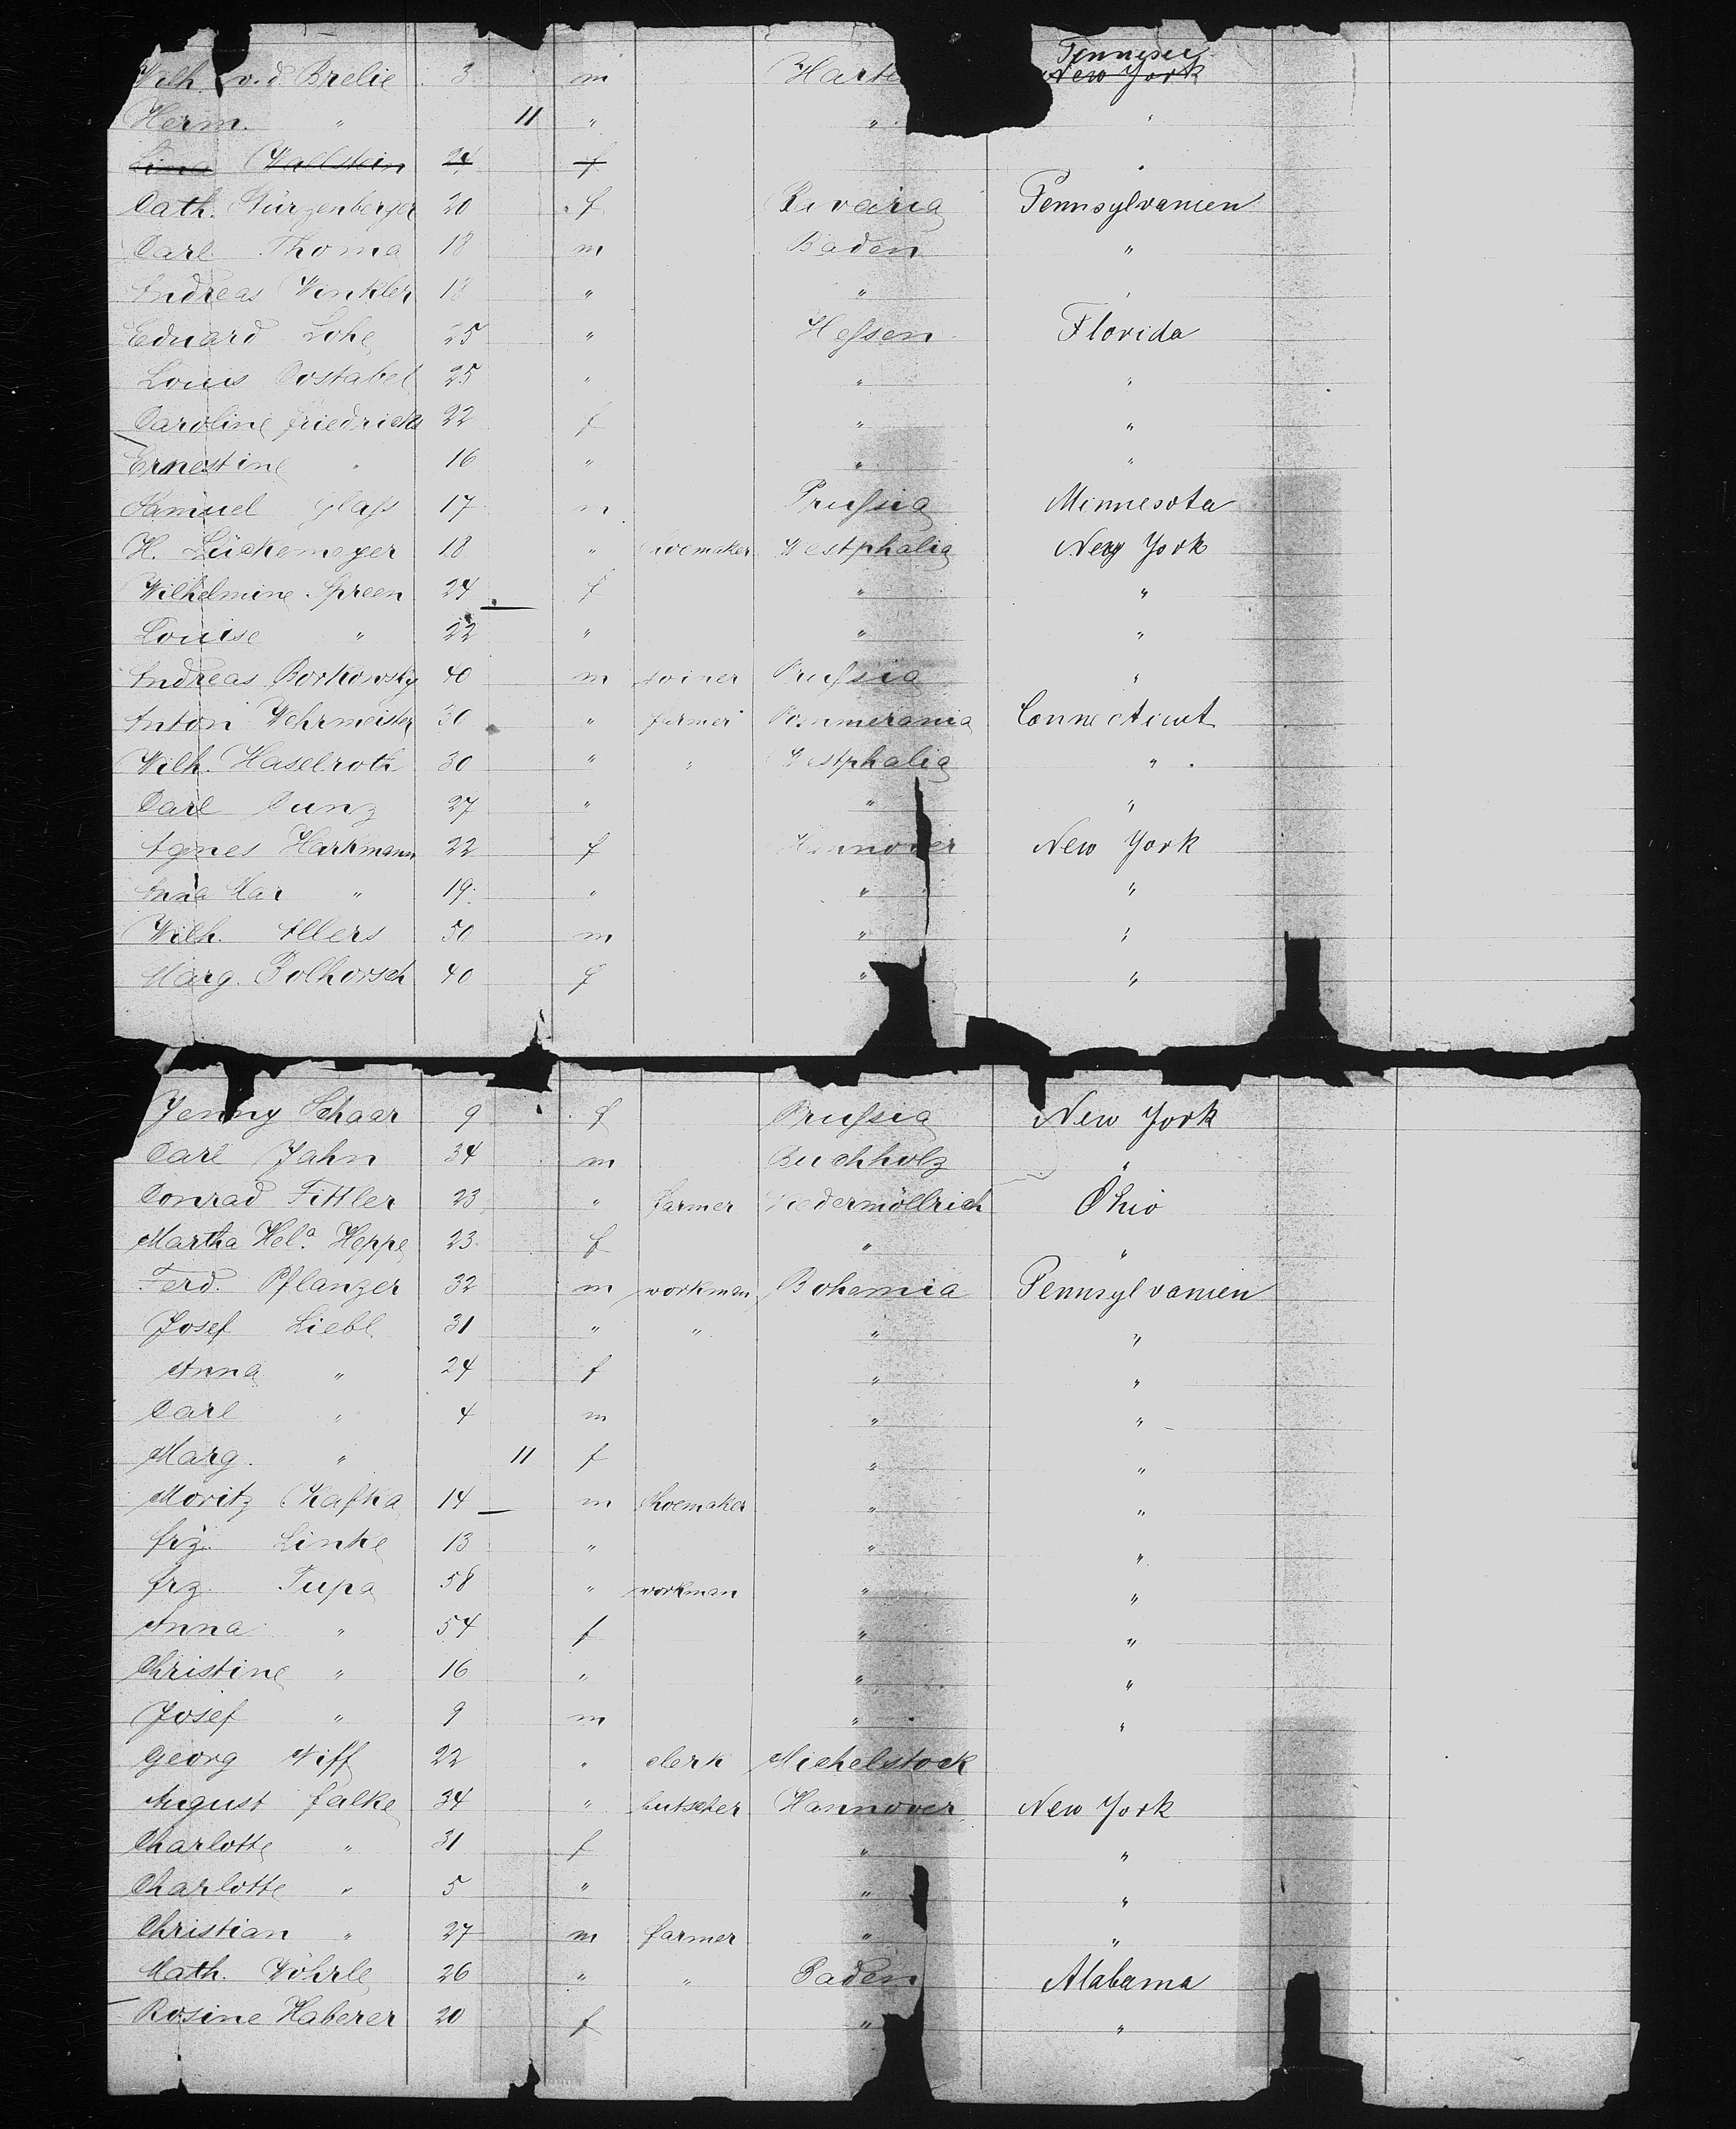 Wilh. v. d Brelie 3 m Tennesse New York
Herm. " 11 " " "
Lina Wallstein 24 f "
Cath. 20 f Bavaria Pennsylvanien
Carl Thoma 18 m Baden "
Andreas Winkler 18 " " "
Eduard Lohe 25 " Hessen Florida
Louis Costabel 25 " " "
Caroline Friedrichs 22 f " "
Ernestine " 16 " " "
Samuel Glass 17 m Prussia Minnesota
H. Lückemeyer 18 " Westphalia New York
Wilhelmine Spreen 24 f " "
Louise " 22 " " "
Andreas Borkowsky 40 m Prussia "
Anton Wehrmeister 30 " farmer Pommerania Connecticut
Wilh. Haselroth 30 " " Westphalia "
Carl Cunz 27 " " "
Agnes Harkmann 22 f Hannover New York
Anna Mar " 19 " " "
Wilh. Allers 50 m " "
Marg. Polhorsch 40 f " "
Jenny Schaar 9 f Prussia New York
Carl Jahn 34 m Buchholz "
Conrad Fittler 23 " farmer Niedermöllrich Ohio
Martha Hela. Heppe 23 f " "
Ferd. Pflanzer 32 m workman Bohemia Pennsylvanien
Josef Liebl 31 " " " "
Anna " 24 f " "
Carl " 4 m " "
Marg. " 11 f " "
Moritz Kafka 14 m shoemaker " "
frz. Linke 13 " " "
frz. Tupa 58 " workman " "
Anna " 54 f " "
Christine " 16 " " "
Josef " 9 m " "
Georg Wiff 22 " clerk Michelstock
August Falke 34 " butscher Hannover New York
Charlotte " 31 f " "
Charlotte " 5 " " "
Christian " 27 m farmer " "
Math. Wöhrle 26 " " Baden Alabama
Rosine Haberer 20 f " "